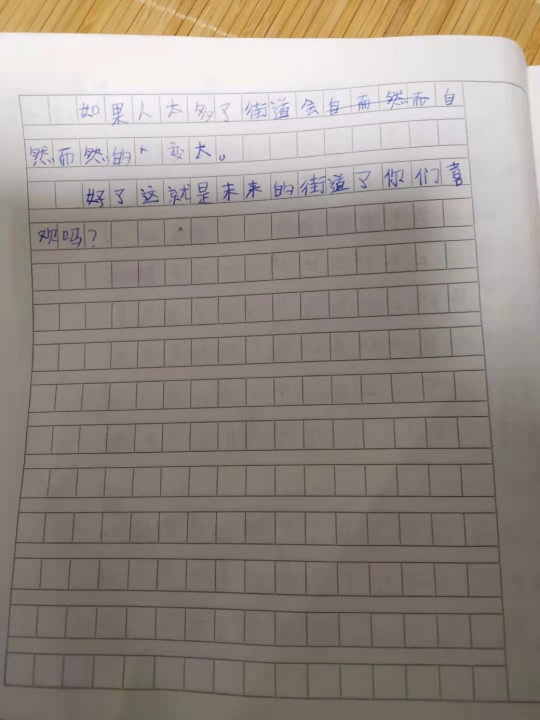 如果人太多了街道会自而然而自
然而然的变大。
好了这就是未来的街道了你们喜
欢吗？